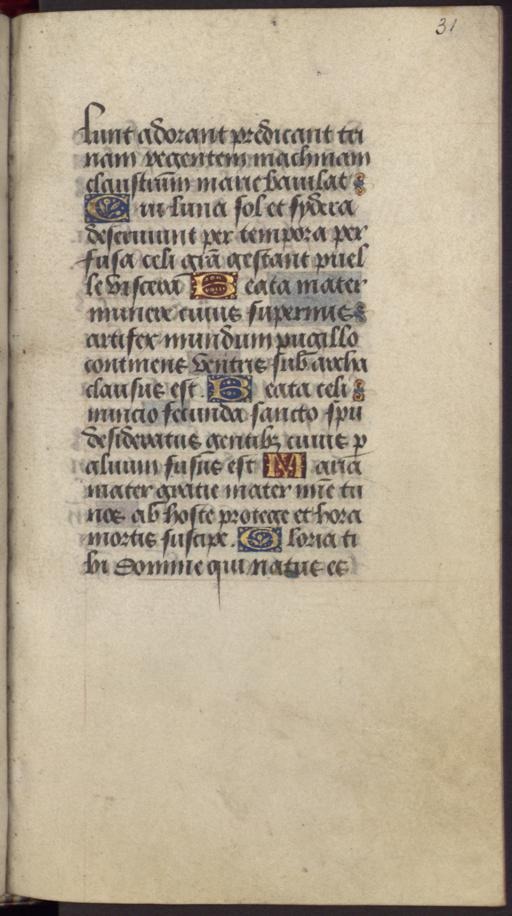 31
lunt adorant predicant tri
nam regentem machinam
claustrum marie baiulat
Cui luna sol et sydera
deseruiunt per tempora per
fusa celi gr̄a gestant puel
le viscera Beata mater
munere cuius supernus
artifex mundum pugillo
continens ventris sub archa
clausus est. Beata celi
nuncio fecunda sancto sp̄u
desideratus gentibꝫ cuius ꝑ
aluum fusus est Maria
mater gratie mater mīe tu
nos ab hoste protege et hora
mortis suscipe. Gloria ti
bi domine qui natus es